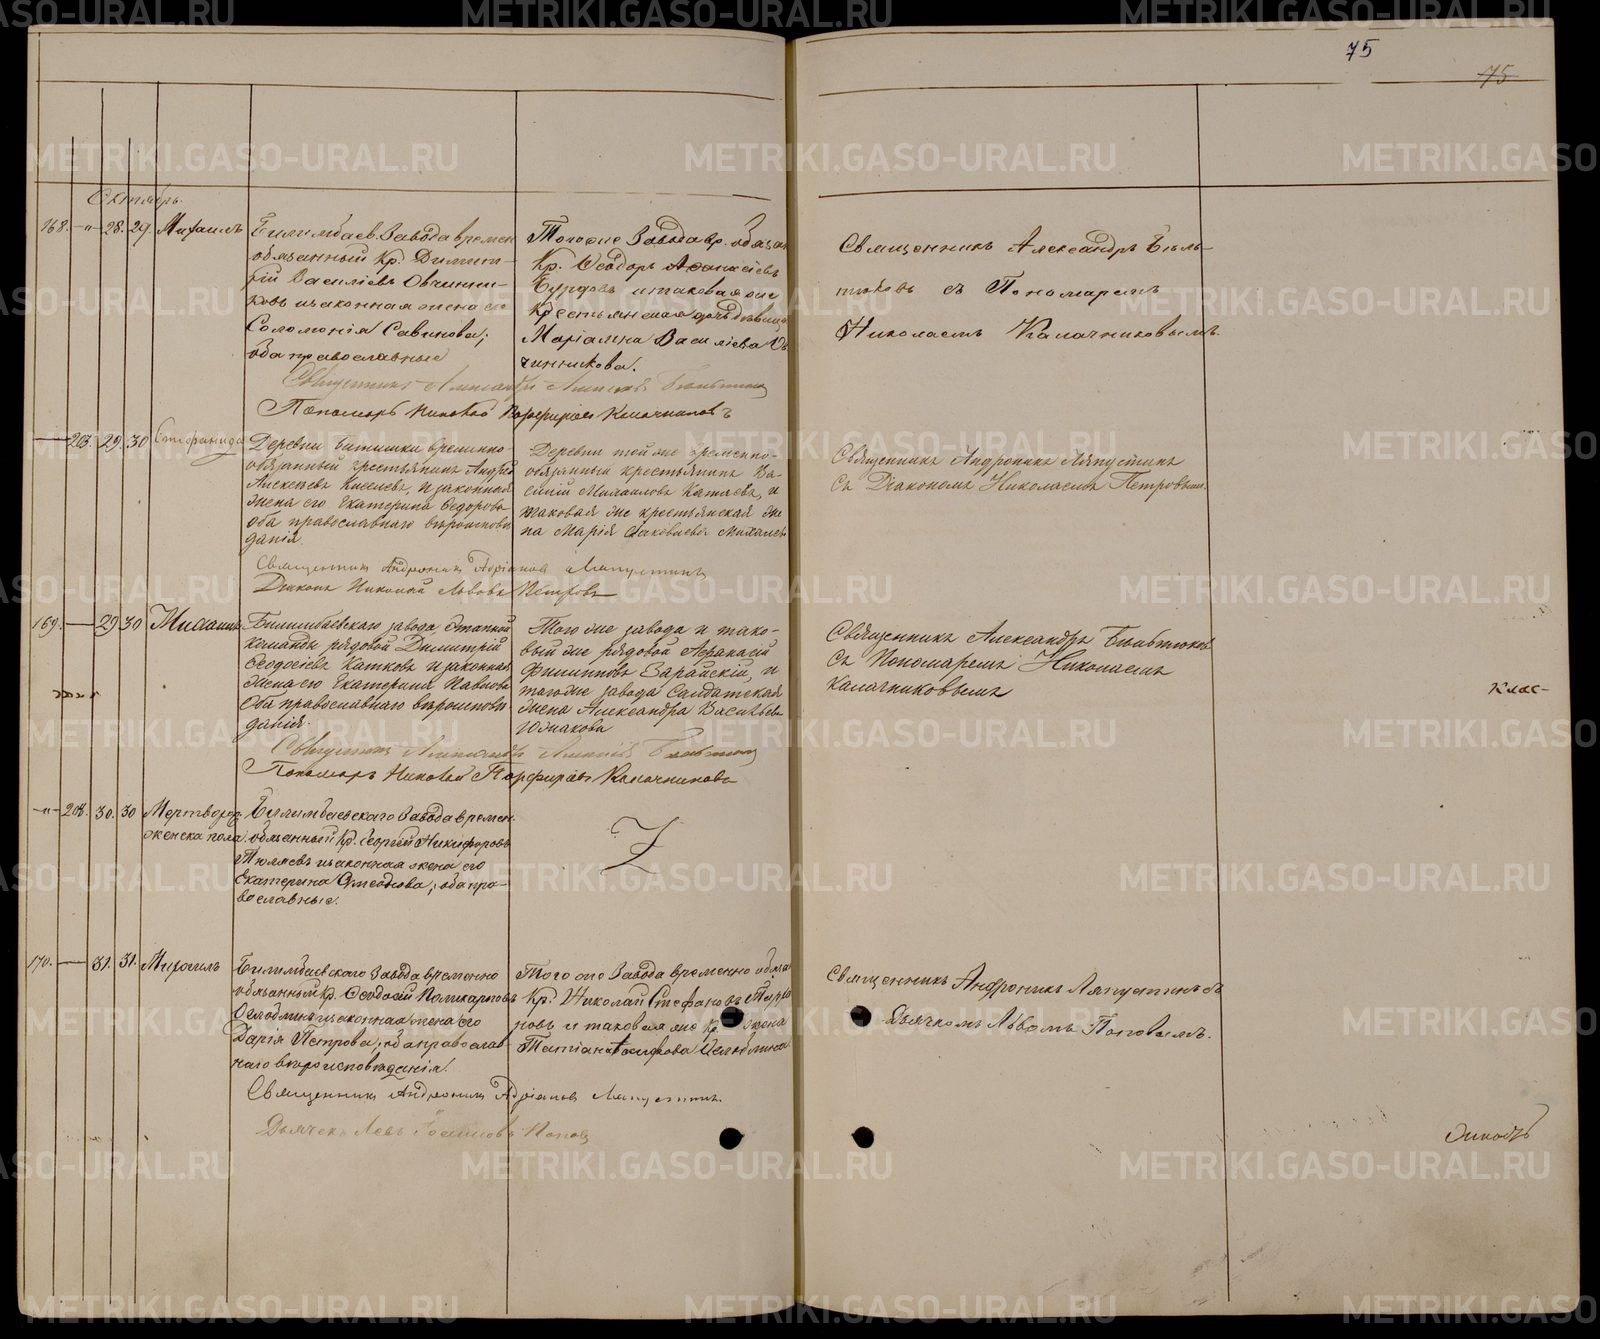 75
75
Октябрь.
168. -"- 28. 29. Михаилъ
Билимбаев. Завода времен
обязанный Кр. Димит-
рій Василіевъ Овчинни-
ковъ и законная жена его
Соломонія Савинова;
оба православные
Тогоже Завода вр. обязан
Кр. Ѳеодоръ Аѳанасіевъ
Бурдовъ и таковая же
Крестьянская дочь девица
Маріамна Василіева Ов
чинникова.
Священникъ Александръ Бѣль-
тюковъ съ Пономаремъ
Николаемъ Калачниковымъ.
Священникъ Александръ Алексіевъ Бѣльтюковъ
Пономарь Николай Порфиріевъ Калачниковъ
203. 29. 30 Стефанида
Деревни Битимки временно-
обязанный крестьянинъ Андрей
Алексѣевъ Киселевъ, и законная
жена его Екатерина Ѳедорова
оба православнаго вѣроисповѣ
данія.
Деревни тойже временно-
обязанный крестьянинъ Ва-
силій Михаиловъ Катаевъ, и
таковая же крестьянская же
на Марія Яковлева Михалева
Священникъ Андроникъ Ляпустинъ
Съ Діакономъ Николаемъ Петровымъ.
Священникъ Андроникъ Адріановъ Ляпустинъ
Діаконъ Николай Львовъ Петровъ
169. 29 30 Михаилъ
Билимбаевскаго завода, Этапной
команды рядовой Димитрій
Ѳеодосіевъ Катковъ и законная
жена его Екатерина Павлова
оба православнаго вѣроисповѣ
данія.
Того же завода и тако-
вый же рядовой Аѳанасій
Филипповъ Зарайскій, и
тогоже завода Солдатская
жена Александра Васильева
Южакова
Священникъ Александръ Бѣльтюковъ
Съ Пономаремъ Николаемъ
Калачниковымъ
Клас-
Священникъ Александръ Алексіевъ Бѣльтюковъ
Пономарь Николай Порфиріевъ Калачниковъ
-"- 204. 30. 30 Мертворож.
женска пола.
Билимбаевскаго Завода времен.
обязанный Кр. Георгій Никифоровъ
Тюляевъ и законная жена его
Екатерина Симеонова, оба пра-
вославные.
Z
170. 31. 31. Михаилъ
Билимбаевскаго Завода временно
обязанный Кр. Ѳеодосій Поликарповъ
и законная жена его
Дарія Петрова, оба православ-
наго вѣроисповѣданія.
Того же Завода временно обяза
Кр. Николай Стефановъ
новъ и таковая же кр. жена
Татіана
Священникъ Андроникъ Ляпустинъ съ
Дьячкомъ Львомъ Поповымъ.
Священникъ Андроникъ Адріановъ Ляпустинъ.
Дьячекъ Левъ Попов
METRIKI.GASO-URAL.RU